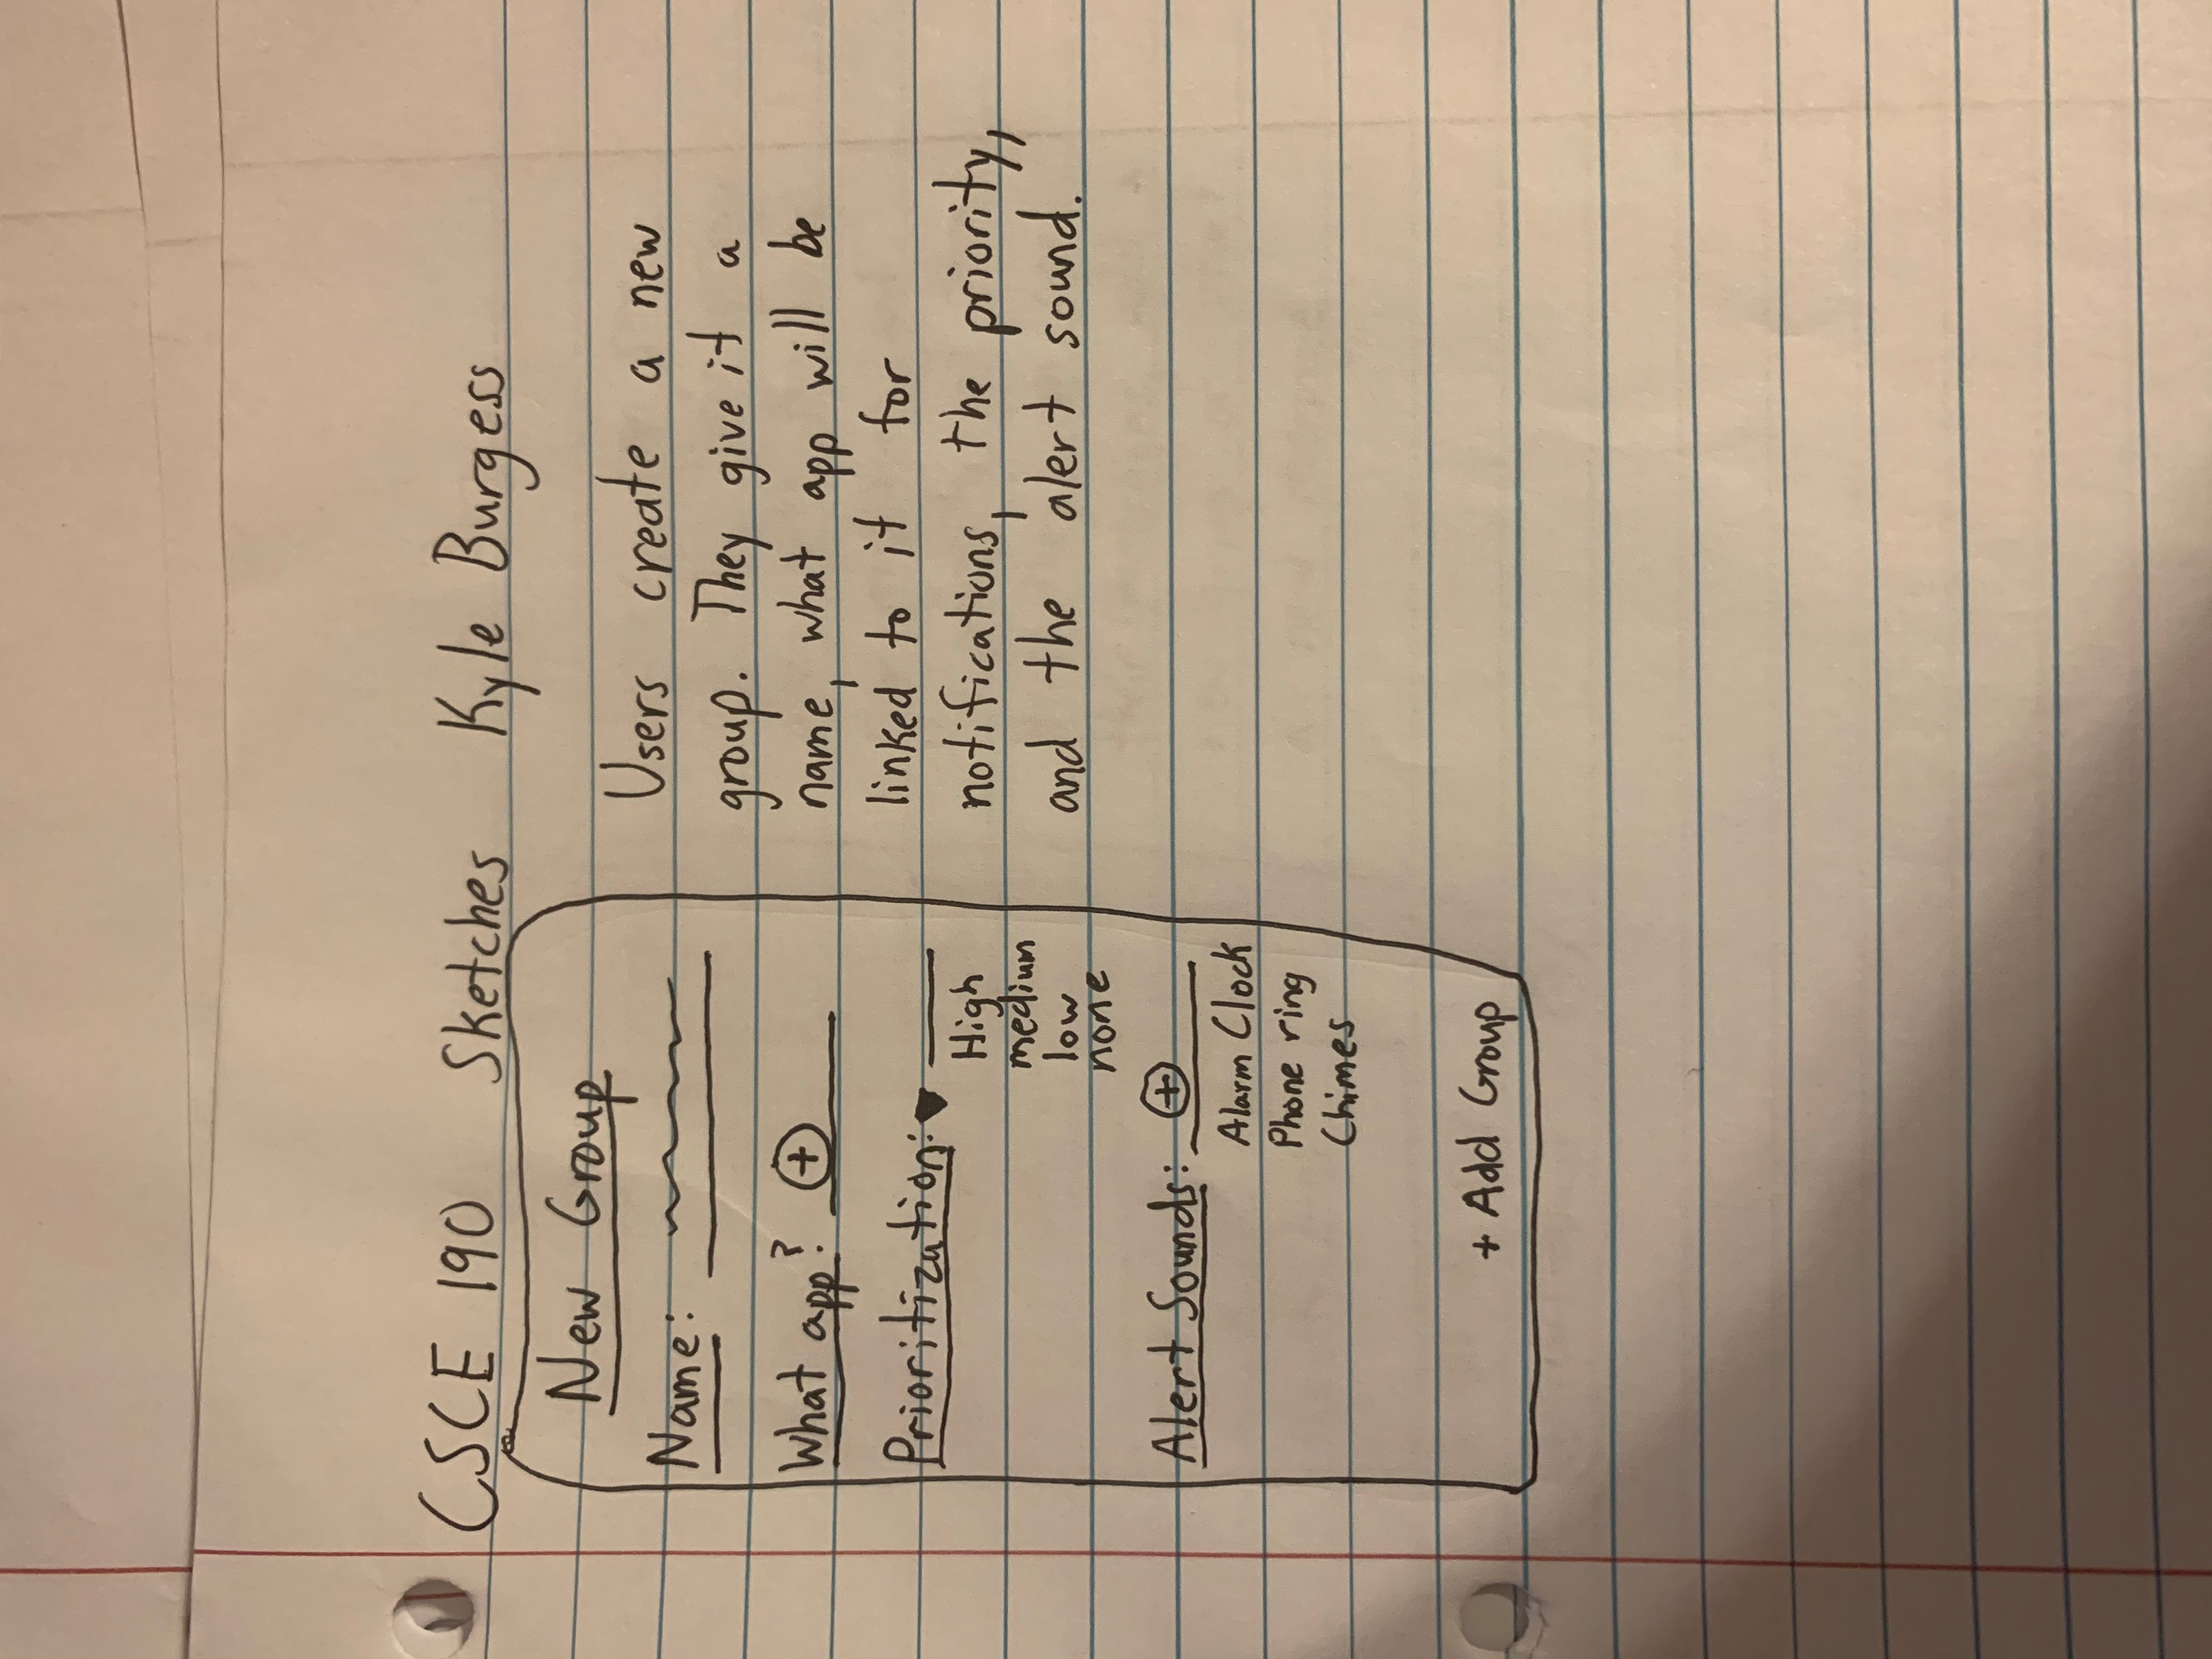 CSCE 190 Sketches Kyle Burgess
New Group
Name:
What app? +
Prioritization:
High
medium
low
none
Alert Sounds: +
Alarm Clock
Phone ring
Chimes
+ Add Group
Users create a new
group. They give it a
name, what app will be
linked to it for
notifications, the priority,
and the alert sound.